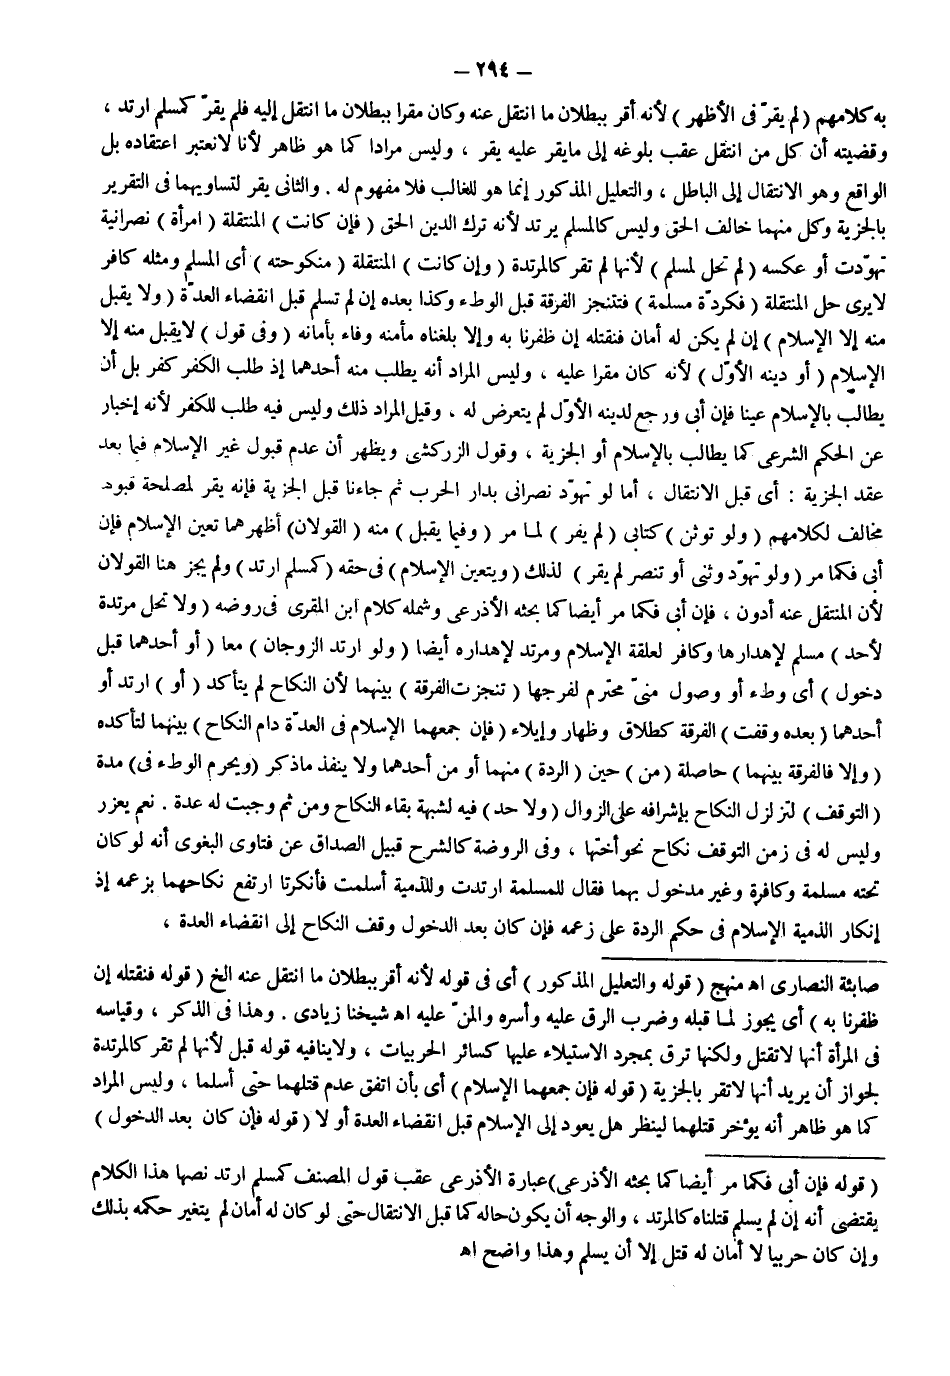 – ٢٩٤ –
به كلامهم ( لم يقرّ فى الأظهر ) لأنه أقر ببطلان ما انتقل عنه وكان مقرا ببطلان ما انتقل إليه فلم يقرّ كمسلم ارتد ،
وقضيته أن كل من انتقل عقب بلوغه إلى مايقر عليه يقر ، وليس مرادا كما هو ظاهر لأنا لانعتبر اعتقاده بل
الواقع وهو الانتقال إلى الباطل ، والتعليل المذكور إنما هو للغالب فلا مفهوم له . والثانى يقر لتساويهما فى التقرير
بالجزية وكل منهما خالف الحق وليس كالمسلم يرتد لأنه ترك الدين الحق ( فإن كانت ) المنتقلة ( امرأة ) نصرانية
تهوّدت أو عكسه ( لم تحل لمسلم ) لأنها لم تقر كالمرتدة ( وإن كانت ) المنتقلة ( منكوحته ) أى المسلم ومثله كافر
لايرى حل المنتقلة ( فكردّة مسلمة ) فتتنجز الفرقة قبل الوطء وكذا بعده إن لم تسلم قبل انقضاء العدّة ( ولا يقبل
منه إلا الإسلام ) إن لم يكن له أمان فنقتله إن ظفرنا به وإلا بلغناه مأمنه وفاء بأمانه ( وفى قول ) لايقبل منه إلا
الإسلام ( أو دينه الأوّل ) لأنه كان مقرا عليه ، وليس المراد أنه يطلب منه أحدهما إذ طلب الكفر كفر بل أن
يطالب بالإسلام عينا فإن أبى ورجع لدينه الأوّل لم يتعرض له ، وقيل المراد ذلك وليس فيه طلب للكفر لأنه إخبار
عن الحكم الشرعى كما يطالب بالإسلام أو الجزية ، وقول الزركشى ويظهر أن عدم قبول غير الإسلام فيما بعد
عقد الجزية : أى قبل الانتقال ، أما لو تهوّد نصرانى بدار الحرب ثم جاءنا قبل الجزية فإنه يقر لمصلحة قبوله
مخالف لكلامهم ( ولو توثن ) كتابى ( لم يقر ) لما مر ( وفيما يقبل ) منه ( القولان) أظهرهما تعين الإسلام فإن
أبى فكما مر ( ولو تهوّد وثنى أو تنصر لم يقر ) لذلك ( ويتعين الإسلام ) فى حقه ( كمسلم ارتد ) ولم يجز هنا القولان
لأن المنتقل عنه أدون ، فإن أبى فكما مر أيضا كما بحثه الأذرعى وشمله كلام ابن المقرى فى روضه ( ولا تحل مرتدة
لأحد ) مسلم لإهدارها وكافر لعلقة الإسلام ومرتد لإهداره أيضا ( ولو ارتد الزوجان ) معا ( أو أحدهما قبل
دخول ) أى وطء أو وصول منىّ محترم لفرجها ( تنجزت الفرقة ) بينهما لأن النكاح لم يتأكد ( أو ) ارتد أو
أحدهما ( بعده وقفت ) الفرقة كطلاق وظهار وإيلاء ( فإن جمعهما الإسلام فى العدّة دام النكاح ) بينهما لتأكده
( وإلا فالفرقة بينهما ) حاصلة ( من ) حين ( الردة ) منهما أو من أحدهما ولا ينفذ ماذكر ( ويحرم الوطء فى) مدة
( التوقف ) لتزلزل النكاح بإشرافه على الزوال ( ولا حد ) فيه لشبهة بقاء النكاح ومن ثم وجبت له عدة . نعم يعزر
وليس له فى زمن التوقف نكاح نحو أختها ، وفى الروضة كالشرح قبيل الصداق عن فتاوى البغوى أنه لو كان
تحته مسلمة وكافرة وغير مدخول بهما فقال للمسلمة ارتدت وللذمية أسلمت فأنكرتا ارتفع نكاحهما بزعمه إذ
إنكار الذمية الإسلام فى حكم الردة على زعمه فإن كان بعد الدخول وقف النكاح إلى انقضاء العدة ،
صابئة النصارى اه منهج ( قوله والتعليل المذكور ) أى فى قوله لأنه أقر ببطلان ما انتقل عنه الخ ( قوله فنقتله إن
ظفرنا به ) أى يجوز لما قبله وضرب الرق عليه وأسره والمنّ عليه اه شيخنا زيادى . وهذا فى الذكر ، وقياسه
فى المرأة أنها لاتقتل ولكنها ترق بمجرد الاستيلاء عليها كسائر الحربيات ، ولاينافيه قوله قبل لأنها لم تقر كالمرتدة
لجواز أن يريد أنها لاتقر بالجزية ( قوله فإن جمعهما الإسلام ) أى بأن اتفق عدم قتلهما حتى أسلما ، وليس المراد
كما هو ظاهر أنه يؤخر قتلهما لينظر هل يعود إلى الإسلام قبل انقضاء العدة أو لا ( قوله فإن كان بعد الدخول )
( قوله فإن أبى فكما مر أيضا كما بحثه الأذرعى) عبارة الأذرعى عقب قول المصنف كمسلم ارتد نصها هذا الكلام
يقتضى أنه إن لم يسلم قتلناه كالمرتد ، والوجه أن يكون حاله كما قبل الانتقال حتى لو كان له أمان لم يتغير حكمه بذلك
وإن كان حربيا لا أمان له قتل إلا أن يسلم وهذا واضح اه